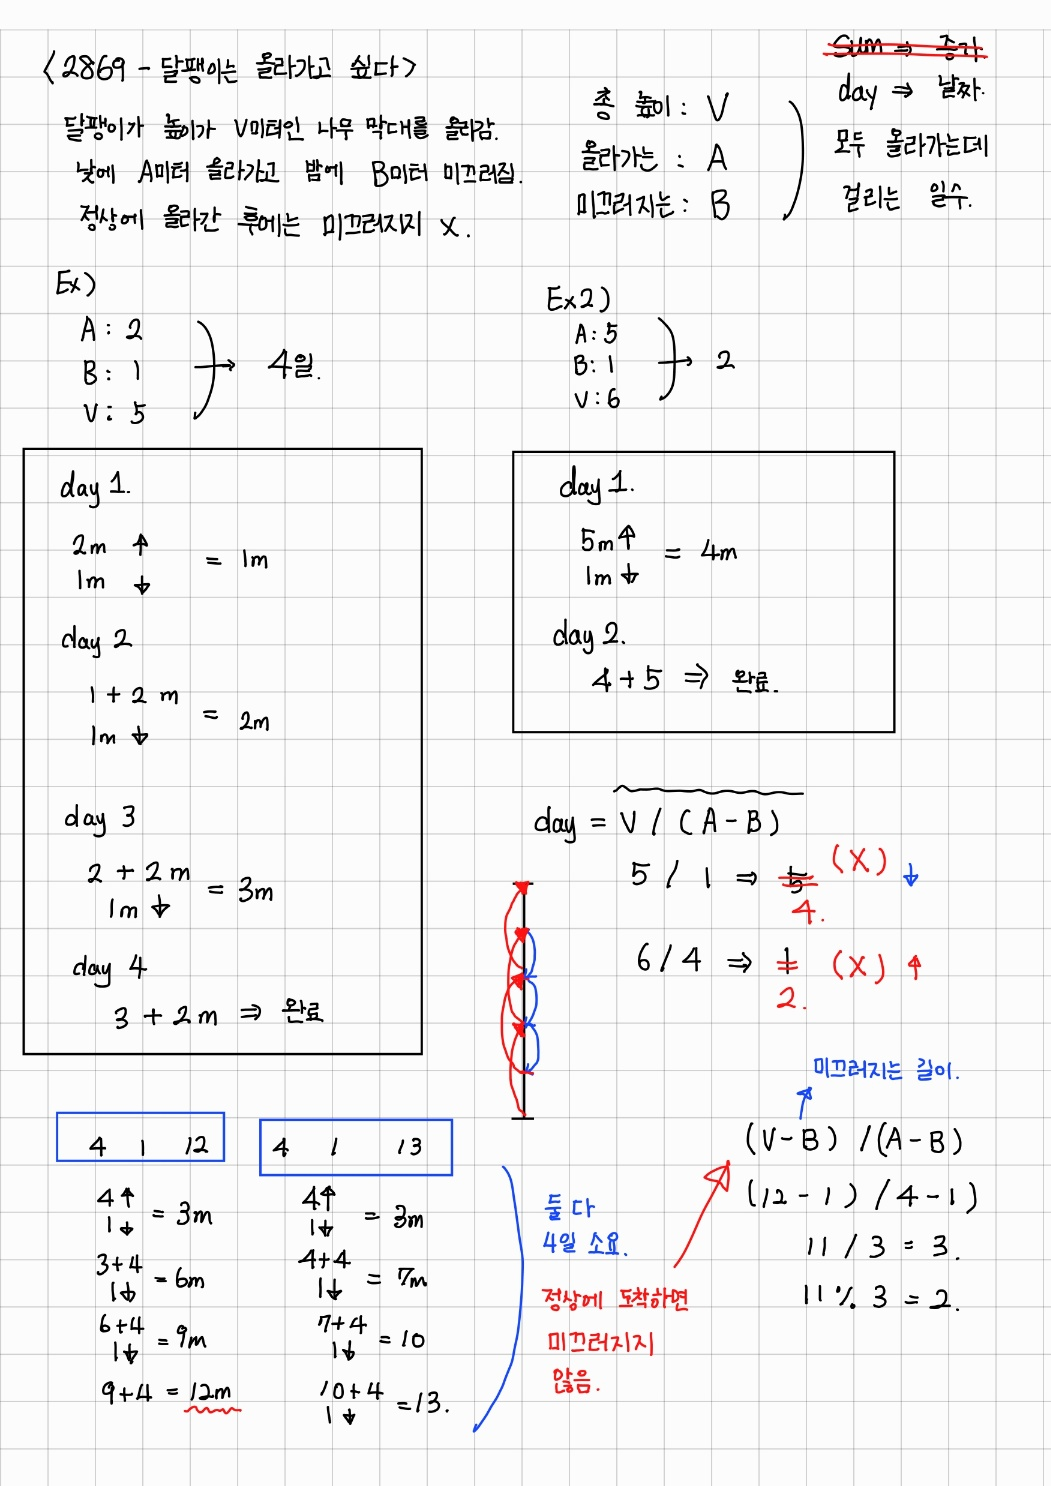 <2869 - 달팽이는 올라가고 싶다>
달팽이가 높이가 V미터인 나무 막대를 올라감.
낮에 A미터 올라가고 밤에 B미터 미끄러짐.
정상에 올라간 후에는 미끄러지지 X.
총 높이 : V
올라가는 : A
미끄러지는 : B
sum ⇒ 증가.
day ⇒ 날짜.
모두 올라가는데
걸리는 일수.
Ex)
A : 2
B : 1
V : 5
→ 4일.
Ex2)
A : 5
B : 1
V : 6
→ 2
day 1.
2m ↑
1m ↓
= 1m
day 2
1 + 2 m
1m ↓
= 2m
day 3
2 + 2 m
1m ↓
= 3m
day 4
3 + 2m ⇒ 완료
day 1.
5m ↑
1m ↓
= 4m
day 2.
4 + 5 ⇒ 완료.
day = V / (A - B)
5 / 1 ⇒ 5 (X) ↓
4.
6 / 4 ⇒ 1 (X) ↑
2.
미끄러지는 길이.
(V - B) / (A - B)
(12 - 1) / 4 - 1)
11 / 3 = 3.
11 % 3 = 2.
4 1 12
4 ↑
1 ↓
= 3m
3+4
1 ↓
= 6m
6+4
1 ↓
= 9m
9+4 = 12m
4 1 13
4 ↑
1 ↓
= 3m
4+4
1 ↓
= 7m
7+4
1 ↓
= 10
10+4
1 ↓
= 13.
둘 다
4일 소요.
정상에 도착하면
미끄러지지
않음.